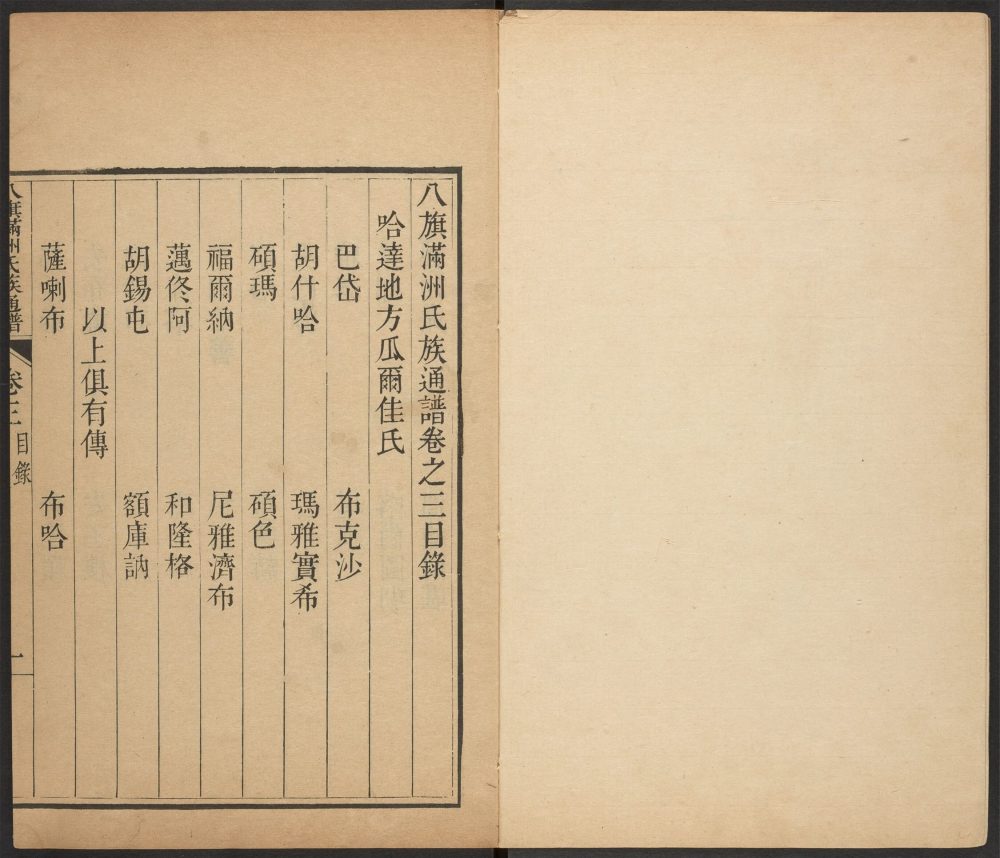 八旗滿洲氏族通譜卷之三目錄
哈達地方瓜爾佳氏
巴岱　布克沙
胡什哈　瑪雅實希
碩瑪　碩色
福爾納　尼雅濟布
邁佟阿　和隆格
胡錫屯　額庫訥
以上俱有傳
薩喇布　布哈
八旗滿洲氏族通譜　卷三　目錄　一